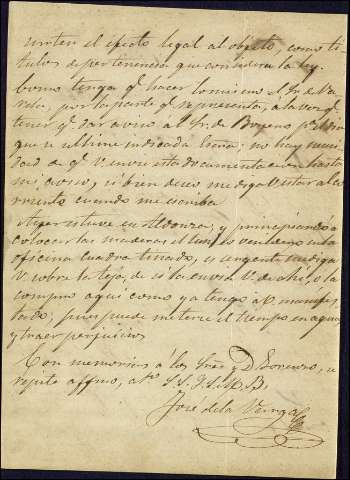 surten el efecto legal al objeto, como ti-
tulos de pertenencia que considera la ley.
como tenga q.e hacer lo mismo el Sr. de Va-
rela, por la parte q.e representa, a la vez q.e
tener q.e dar aviso al Sr. de Boneno p.a el dia
que se ultime indicada; no hay necesi-
dad de q.e V. envie esta documentacion hasta
mi aviso, si bien deseo me diga V. estar al co-
rriente cuando me escriba
Ayer estuve en Aldonza, y principiando a
colocar las maderas el lunes en la
oficina cuadra tinado, es urgente me diga
V. sobre la teja, de si la envia V. de ahi, o la
compro aqui como ya tengo a V. manifes-
tado; pues puede meterse el tiempo en aguas
y traer perjuicios
Con memorias a los Sres. y D. Lorenzo, se
repite affmo. at.o S. S. Q. S. M. B.
José de la Veinga